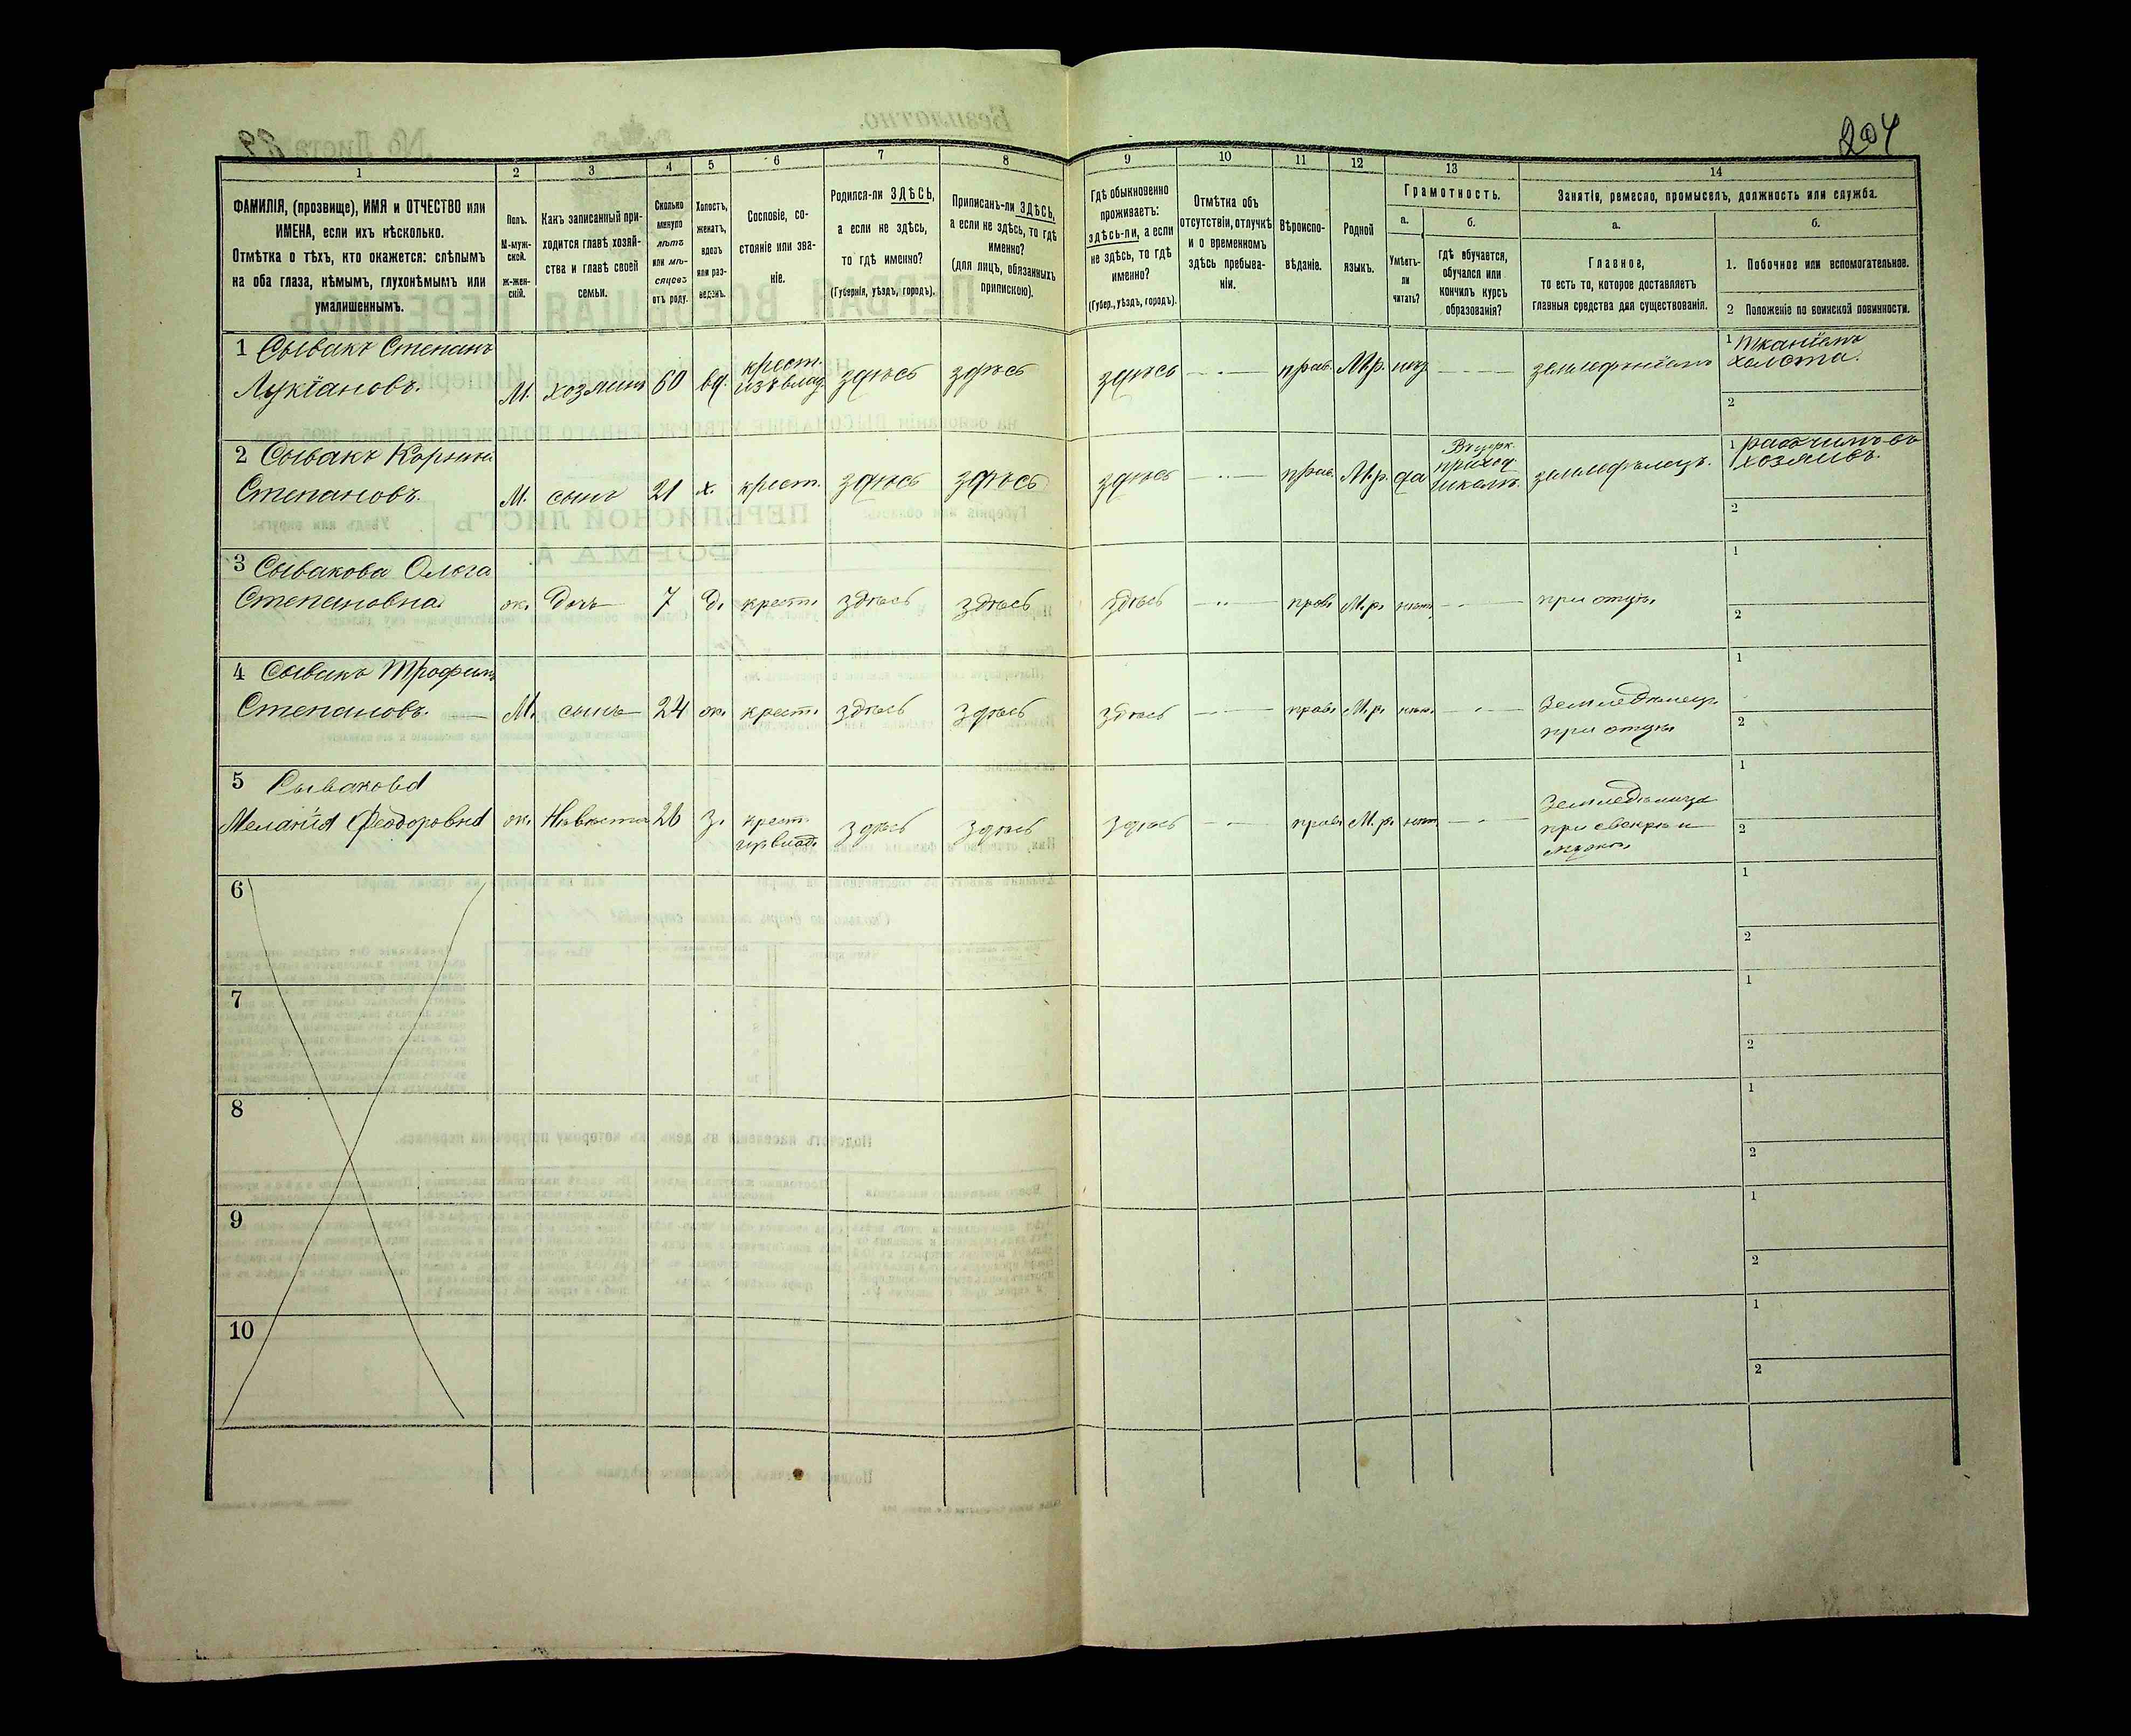 204
1 2 3 4 5 6 7 8 9 10 11 12 13 14
ФАМИЛІЯ, (прозвище), ИМЯ и ОТЧЕСТВО или
ИМЕНА, если ихъ нѣсколько.
Отмѣтка о тѣхъ, кто окажется: слѣпымъ
на оба глаза, нѣмымъ, глухонѣмымъ или
умалишеннымъ.
Полъ.
М-муж-
ской.
ж-жен-
скій.
Какъ записанный при-
ходится главѣ хозяй-
ства и главѣ своей
семьи.
Сколько
минуло
лѣтъ
или мѣ-
сяцевъ
отъ роду.
Холостъ,
женатъ,
вдовъ
или раз-
веденъ.
Сословіе, со-
стояніе или зва-
ніе.
Родился-ли ЗДѢСЬ,
а если не здѣсь,
то гдѣ именно?
(Губернія, уѣздъ, городъ).
Приписанъ-ли ЗДѢСЬ,
а если не здѣсь, то гдѣ
именно?
(для лицъ, обязанныхъ
припискою).
Гдѣ обыкновенно
проживаетъ:
здѣсь-ли, а если
не здѣсь, то гдѣ
именно?
(Губер., уѣздъ, городъ).
Отмѣтка объ
отсутствіи, отлучкѣ
и о временномъ
здѣсь пребыва-
ніи.
Вѣроиспо-
вѣданіе.
Родной
языкъ.
Грамотность.
а.
Умѣетъ-
ли
читать?
б.
гдѣ обучается,
обучался или
кончилъ курсъ
образованія?
Занятія, ремесло, промыселъ, должность или служба.
а.
Главное,
то есть то, которое доставляетъ
главныя средства для существованія.
б.
1. Побочное или вспомогательное.
2 Положеніе по воинской повинности.
1 Сывакъ Степанъ
Лукіановъ. М. хозяинъ 60 вд. крест. изъ влад. здѣсь здѣсь здѣсь прав. М.р. нѣт землед.
1
холста.
2
2 Сывакъ
Степановъ. М. сынъ 21 х. крест. здѣсь здѣсь здѣсь прав. М.р. да
приход.
школѣ. земледѣлецъ.
1
2
3 Сывакова Ольга
Степановна ж. дочь 7 д. крест. здѣсь здѣсь здѣсь прав. М.р. нѣтъ при отцѣ
1
2
4 Сывакъ Трофимъ
Степановъ. М. сынъ 24 ж. крест. здѣсь здѣсь здѣсь прав. М.р. нѣтъ Земледѣлецъ
при отцѣ
1
2
5 Сывакова
Меланія Феодоровна ж. Невѣстка 26 з. крест. здѣсь здѣсь здѣсь прав. М.р. нѣт. Земледѣлица
при свекрѣ и
мужѣ.
1
2
6
1
2
7
1
2
8
1
2
9
1
2
10
1
2